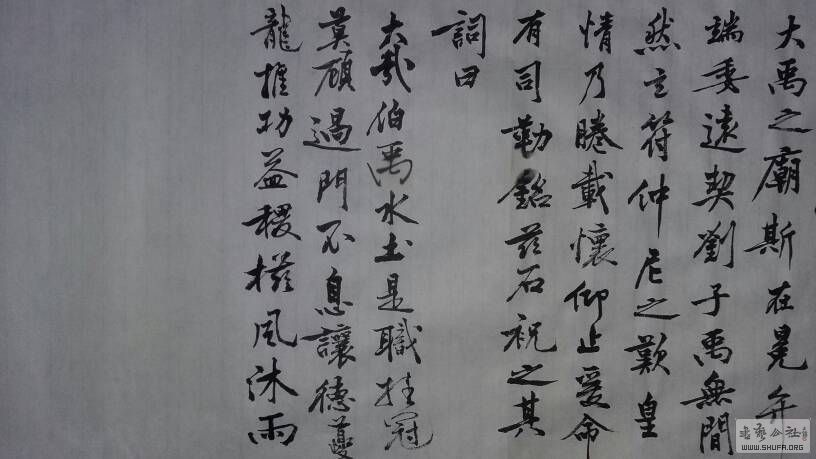 大禹之廟斯在冕弁
端委遠契劉子禹無間
然立符仲尼之歎皇
情乃睠載懷仰止爰命
有司勒銘茲石祝之其
詞曰
大哉伯禹水土是職挂冠
莫顧過門不息讓德夔
龍推功益稷櫛風沐雨
書藝公社
WWW.SHUFA.ORG